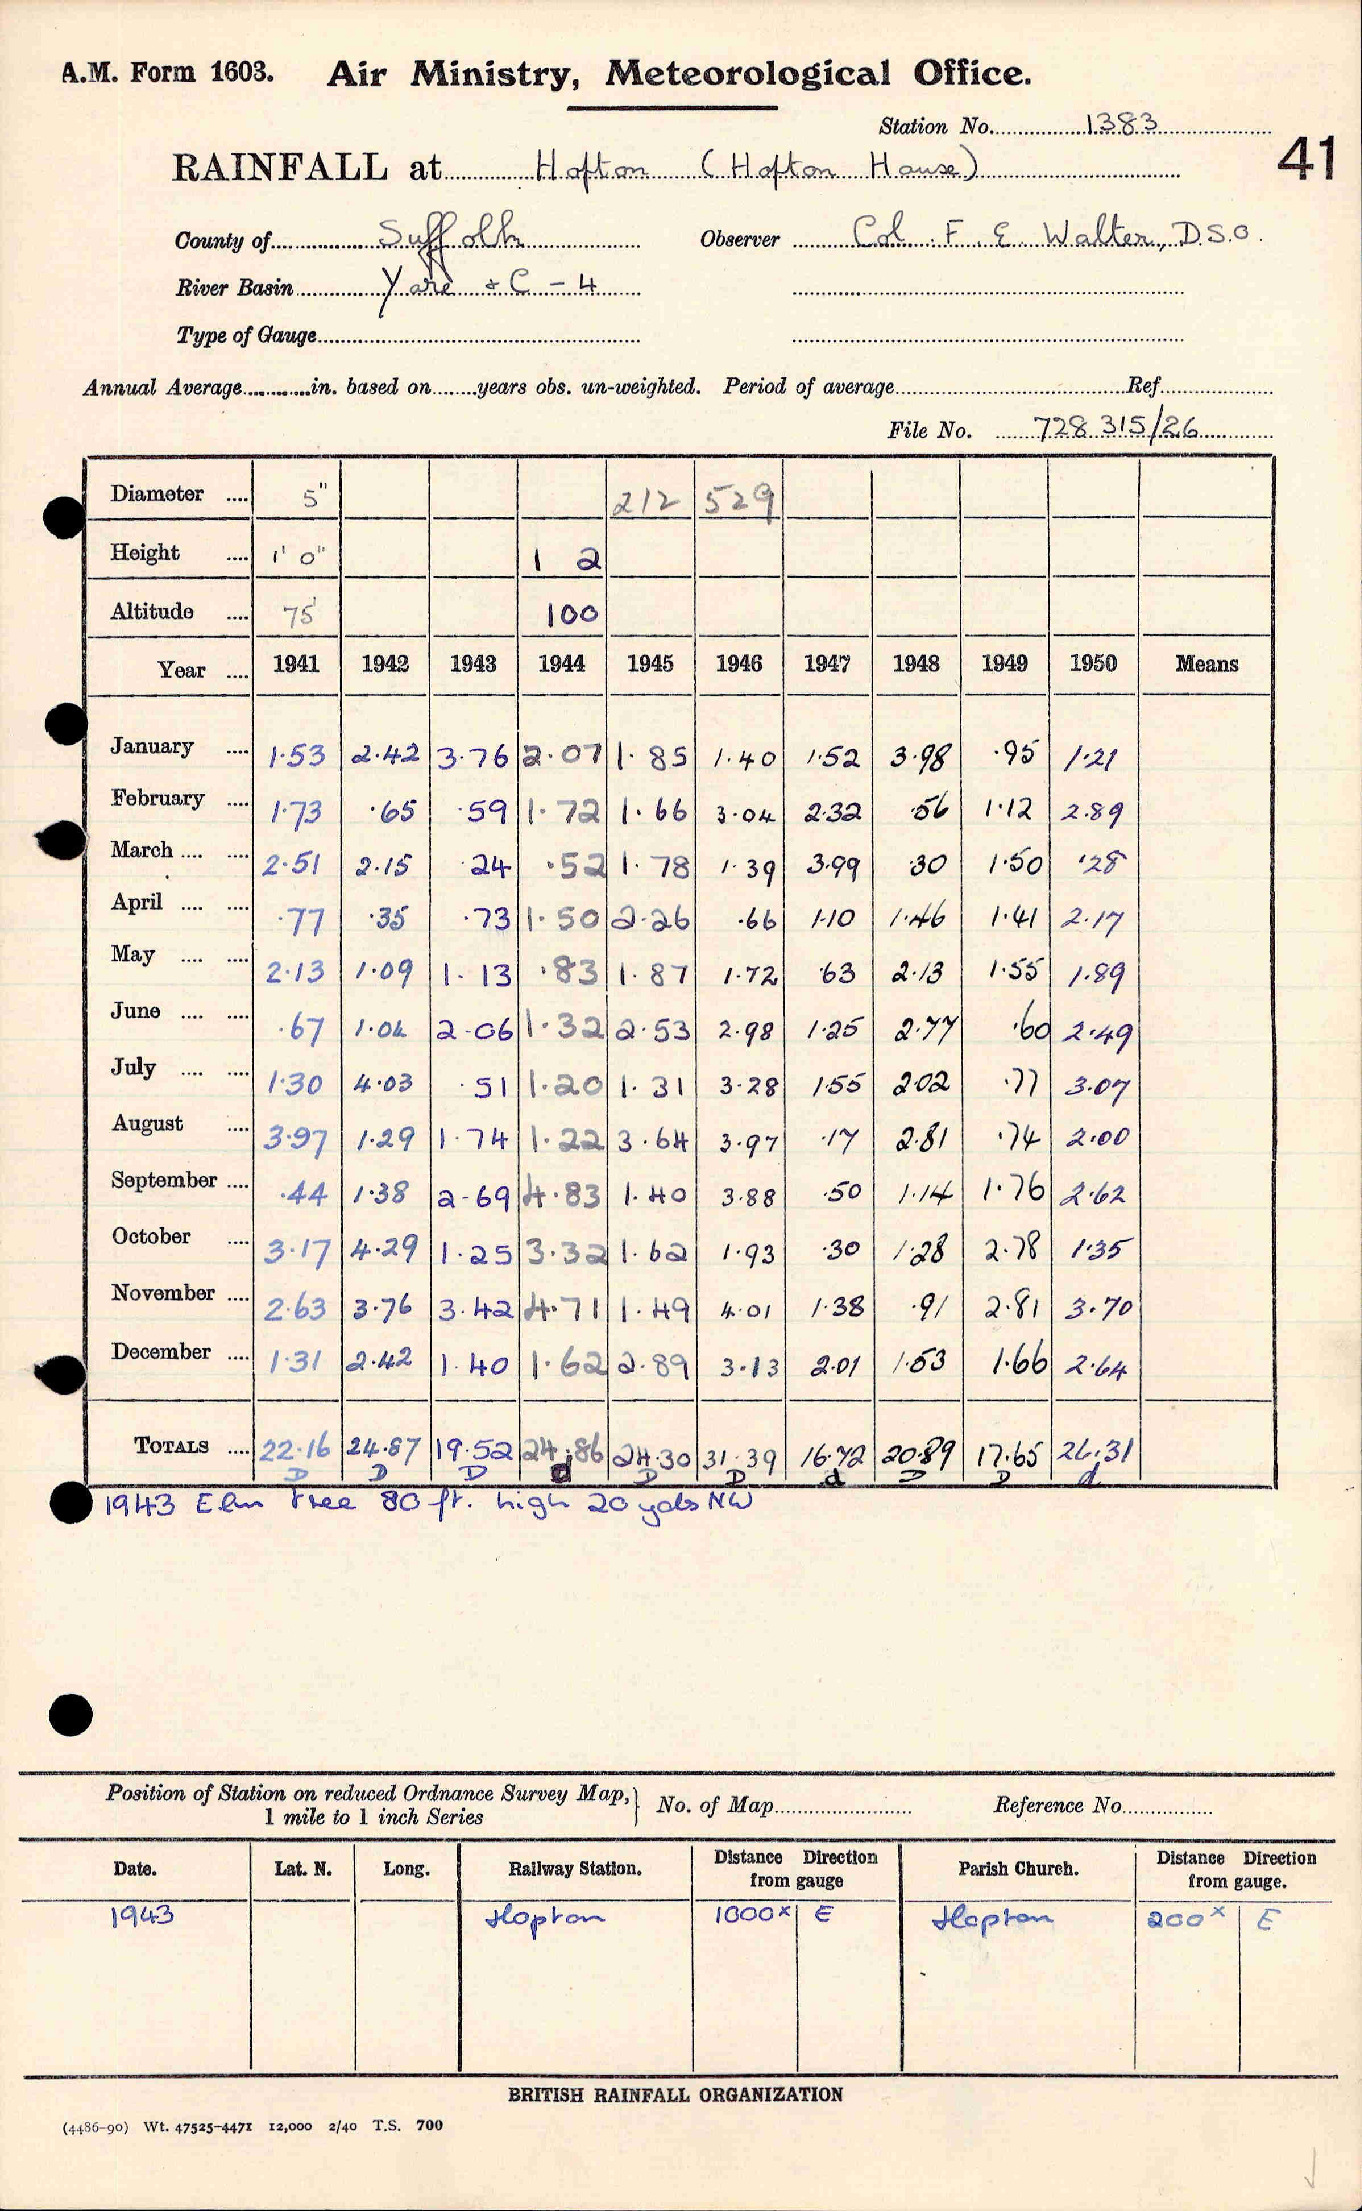 A.M. Form 1603. Air Ministry, Meteorological Office.
Station No. 1383
41
RAINFALL at Hopton (Hopton House)
County of Suffolk Observer Col. F. E. Walter, D.S.O.
River Basin Yare &C - 4
Type of Gauge
Annual Average in. based on years obs. un-weighted. Period of average Ref.
File No. 728 315/26
Diameter .... 5" 212 529
Height .... 1' 0" 1 2
Altitude .... 75' 100
Year .... 1941 1942 1943 1944 1945 1946 1947 1948 1949 1950 Means
January .... 1.53 2.42 3.76 2.07 1.85 1.40 1.52 3.98 .95 1.21
February .... 1.73 .65 .59 1.72 1.66 3.04 2.32 .56 1.12 2.89
March .... .... 2.51 2.15 .24 .52 1.78 1.39 3.99 .30 1.50 .28
April .... .... .77 .35 .73 1.50 2.26 .66 1.10 1.46 1.41 2.17
May .... .... 2.13 1.09 1.13 .83 1.87 1.72 .63 2.13 1.55 1.89
June .... .... .67 1.04 2.06 1.32 2.53 2.98 1.25 2.77 .60 2.49
July .... .... 1.30 4.03 .51 1.20 1.31 3.28 1.55 2.02 .77 3.07
August .... 3.97 1.29 1.74 1.22 3.64 3.97 .17 2.81 .74 2.00
September .... .44 1.38 2.69 4.83 1.40 3.88 .50 1.14 1.76 2.62
October .... 3.17 4.29 1.25 3.32 1.62 1.93 .30 1.28 2.78 1.35
November .... 2.63 3.76 3.42 4.71 1.49 4.01 1.38 .91 2.81 3.70
December .... 1.31 2.42 1.40 1.62 2.89 3.13 2.01 1.53 1.66 2.64
TOTALS .... 22.16 24.87 19.52 24.86 24.30 31.39 16.72 20.89 17.65 26.31
D D D d D D d D D d
1943 Elm tree 80 ft. high 20 yds NW
Position of Station on reduced Ordnance Survey Map, 1 mile to 1 inch Series } No. of Map Reference No.
Date. Lat. N. Long. Railway Station. Distance Direction from gauge Parish Church. Distance Direction from gauge.
1943 Hopton 1000x E Hopton 200x E
BRITISH RAINFALL ORGANIZATION
(4486-90) Wt. 47525-4471 12,000 2/40 T.S. 700